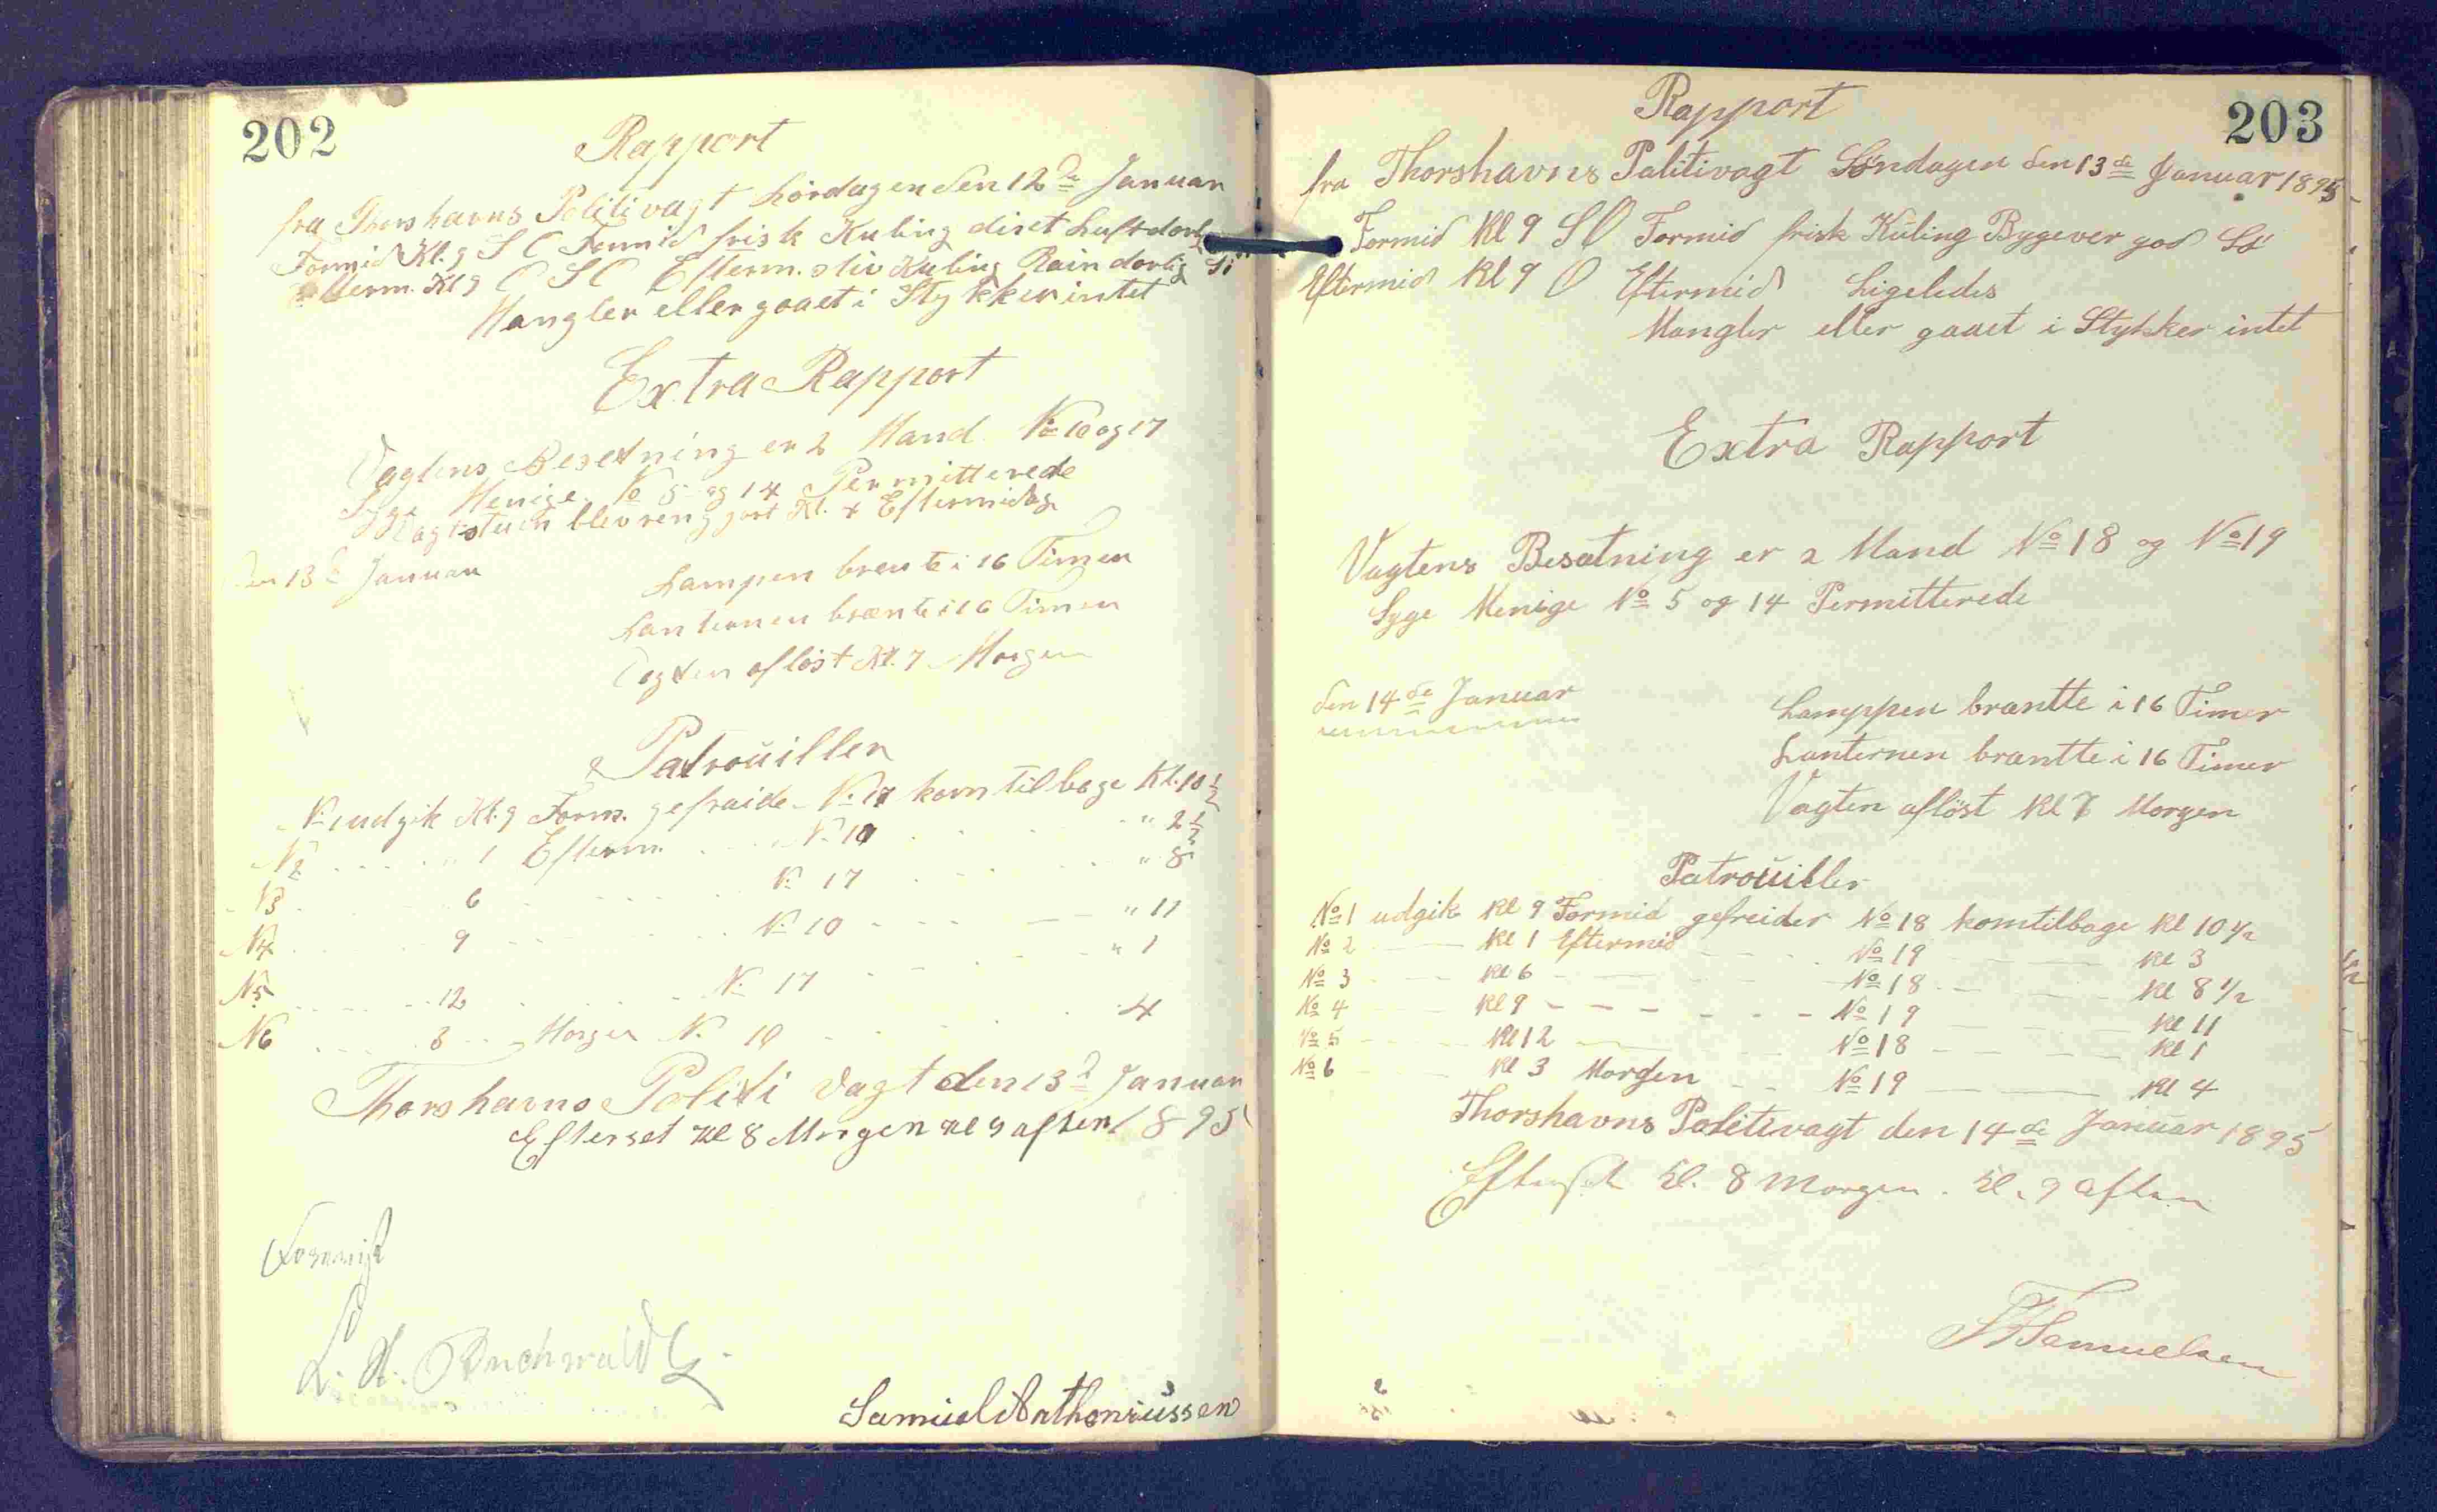 202
Rapport
fra Thorshavns Politivagt Lördagen den 12de Januar
Formid Kl. 9 S O Formid frisk Kuling diset Luft darlig
Efterm. Kl 9 O S O Efterm. stiv Kuling Rain darlig Si
Mangler eller gaaet i Stykker intet
Extra Rapport
Vagtens Besetning er 2 Mand No 10 og 17
Syge Menige No 5 og 14 Permitterede
Vagtstuen blev rengjort Kl. 4 Eftermidag
Den 13d Januar
Lampen brente i 16 Timer
Lanternen brænte i 16 Timer
Vagten aflöst Kl. 7 Morgen
Patrouiller
No 1 udgik Kl. 9 Form. gefraide No 17 kom tilbage Kl. 10 ½
N 2 " 1 Efterm. No 10 " 2 ½
N 3 6 No 17 " 8
N 4 9 No 10 " 11
N 5 12 No 17 " 1
N 6 3 Morgen No 10 4
Thorshavns Politi Vagt den 13d Januar
Efterset Kl 8 Morgen Kl 9 aften 1895
L. H. Buchwaldt
Samuel Anthoniussen
203
Rapport
fra Thorshavns Politivagt Söndagen den 13de Januar 1895
Formid Kl 9 SO Formid frisk Kuling Bygever god Sö
Eftermid Kl 9 O Eftermid Ligeledes
Mangler eller gaaet i Stykker intet
Extra Rapport
Vagtens Besætning er 2 Mand No 18 og No 19
Syge Menige No 5 og 14 Permitterede
den 14de Januar
Lamppen brantte i 16 Timer
Lanternen brantte i 16 Timer
Vagten aflöst Kl 7 Morgen
Patrouiller
No 1 udgik Kl 9 Formid gefreider No 18 komtilbage Kl 10 ½
No 2 Kl 1 Eftermid No 19 Kl 3
No 3 Kl 6 No 18 Kl 8 ½
No 4 Kl 9 No 19 Kl 11
No 5 Kl 12 No 18 Kl 1
No 6 Kl 3 Morgen No 19 Kl 4
Thorshavns Politivagt den 14de Januar 1895
Efterset Kl. 8 Morgen. Kl. 9 Aften
Samuelsen